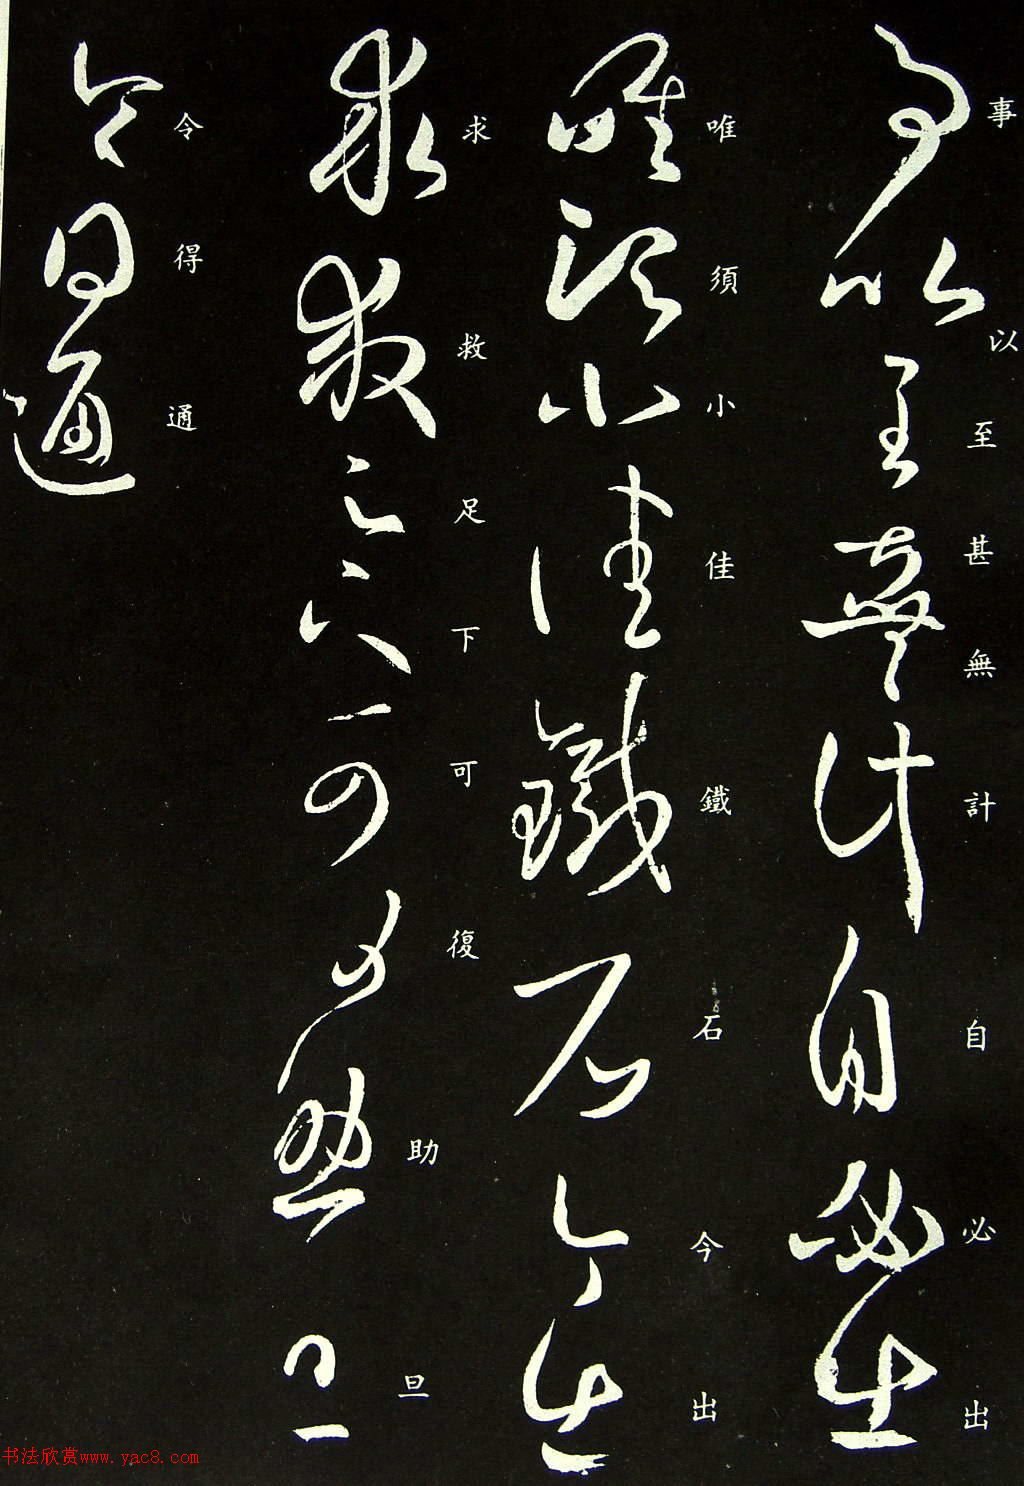 事以至甚無計自必出
唯須小佳鐵石今出
求救足下可復助旦
令得通
书法欣赏www.yac8.com